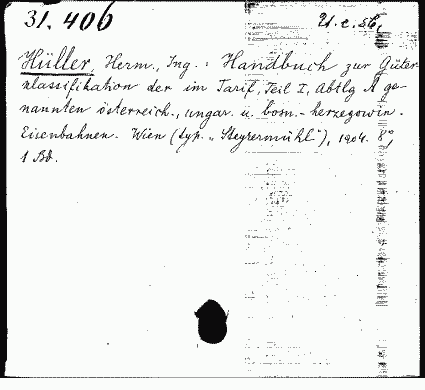 31.406 21.c.56.
Hüller, Herm., Ing.: Handbuch zur Güter-
klassifikation der im Tarif, Teil I, Abtlg A ge-
nannten österreich., ungar. u. bosn.-herzegowin.
Eisenbahnen. Wien (typ. „Steyrermühl"), 1904. 8°,
1 Bd.